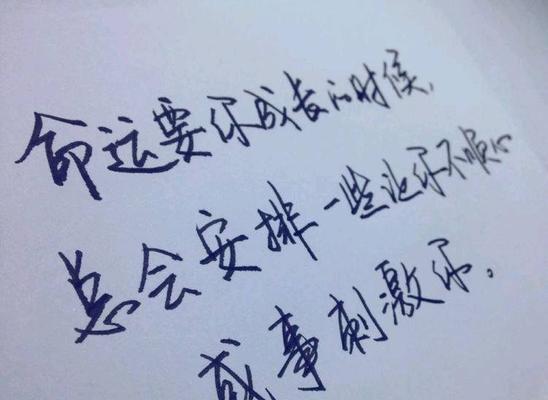 命运要你成长的时候,
总会安排一些让你不顺心
或事刺激你.